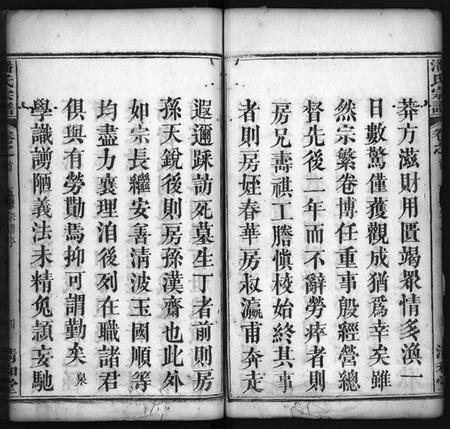 潘氏宗譜
卷之首
莽方滋財用匱竭衆情多渙一
日數驚僅獲觀成猶爲幸矣雖
然宗繁卷博任重事殷經營總
督先後二年而不辭勞瘁者則
房兄壽祺工謄愼校始終其事
者則房姪春華房叔瀛甫奔走
遐邇踩訪死墓生丁者前則房
孫天銳後則房孫漢齋也此外
如宗長繼安善清波玉國順等
均盡力襄理洎後列在職諸君
俱與有勞勩焉抑可謂勤矣泉
學識譾陋義法未精兔潁妄馳
潘氏宗譜
卷之首
四
清和堂